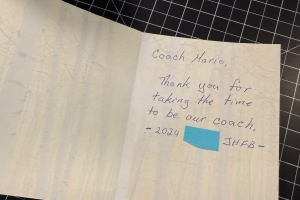 Coach Mario,
Thank you for
taking the time
to be our coach.
- 2024 JHFB -